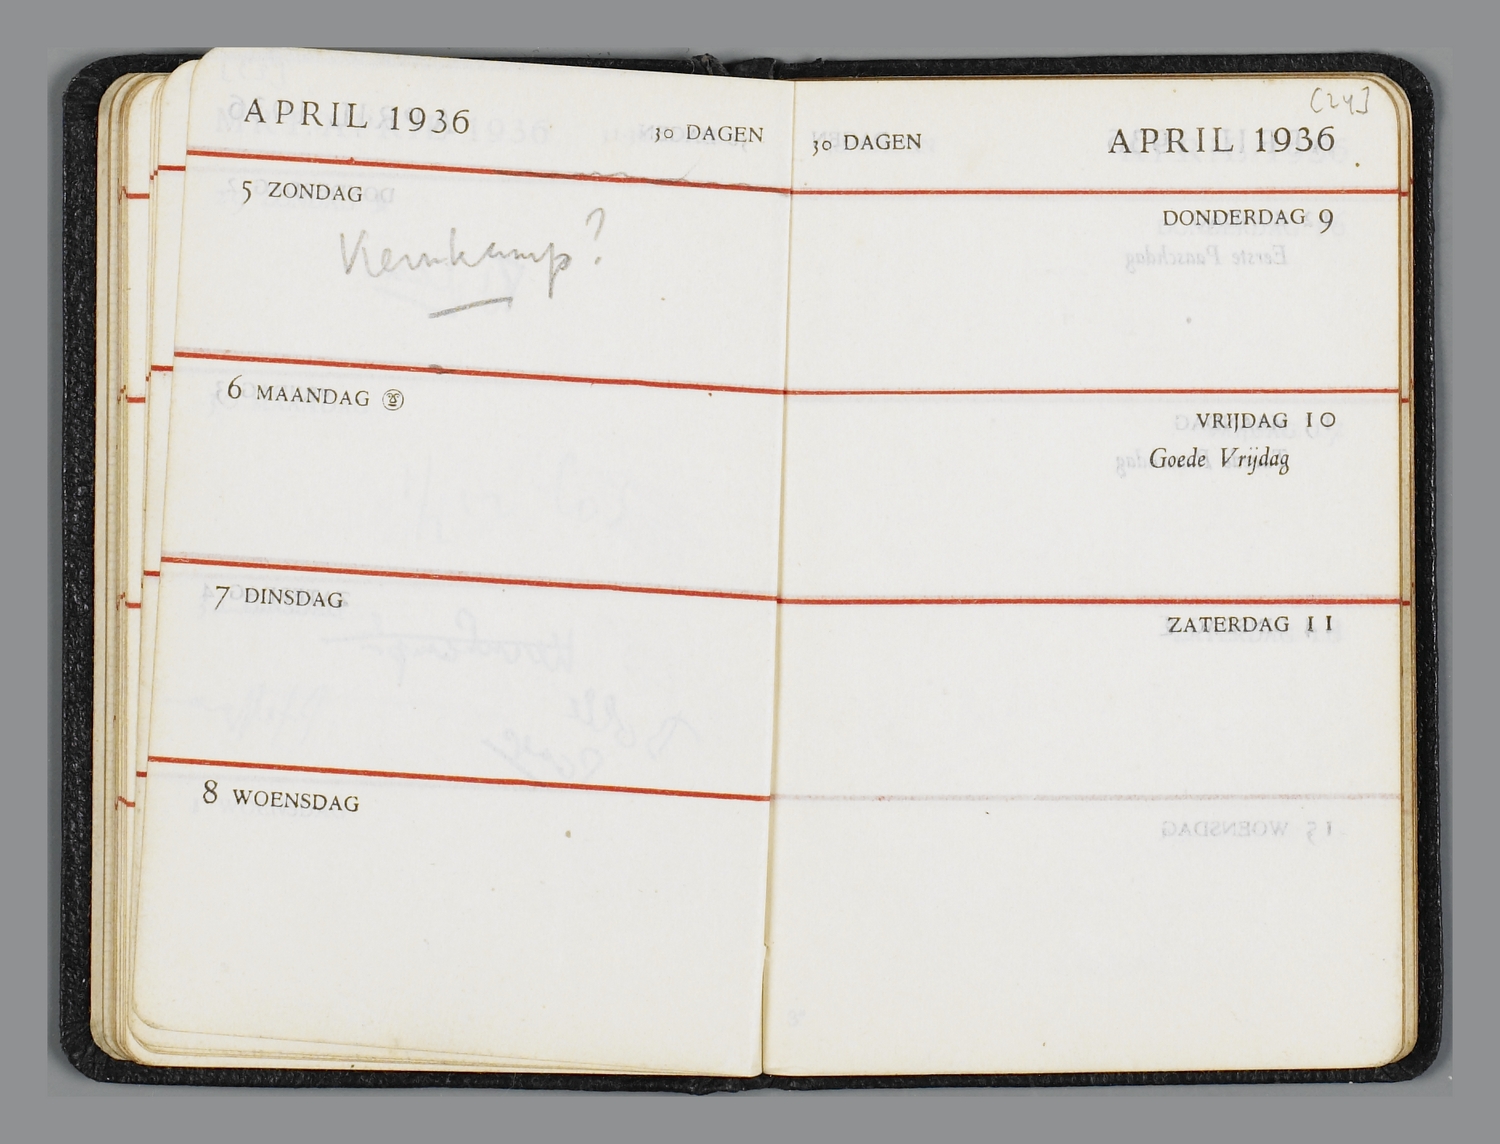 APRIL 1936
30 DAGEN
5 ZONDAG
Kernkamp?
6 MAANDAG
7 DINSDAG
8 WOENSDAG
[24]
30 DAGEN
APRIL 1936
DONDERDAG 9
VRIJDAG 10
Goede Vrijdag
ZATERDAG 11